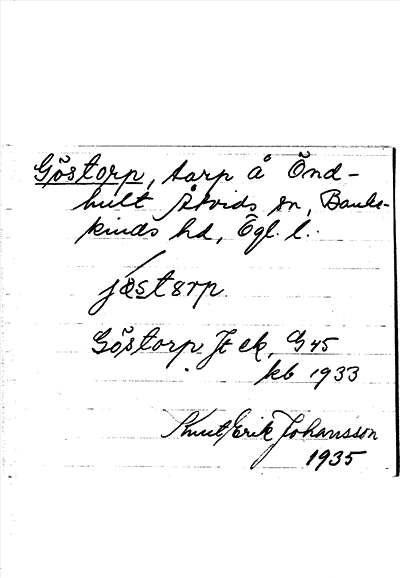 Göstorp, torp å Önd-
hult Åtvids sn, Banke-
kinds hd, Ögl. l.
jøstørp
Göstorp Jt ek, G 45
kb 1933
Knut Erik Johansson
1935